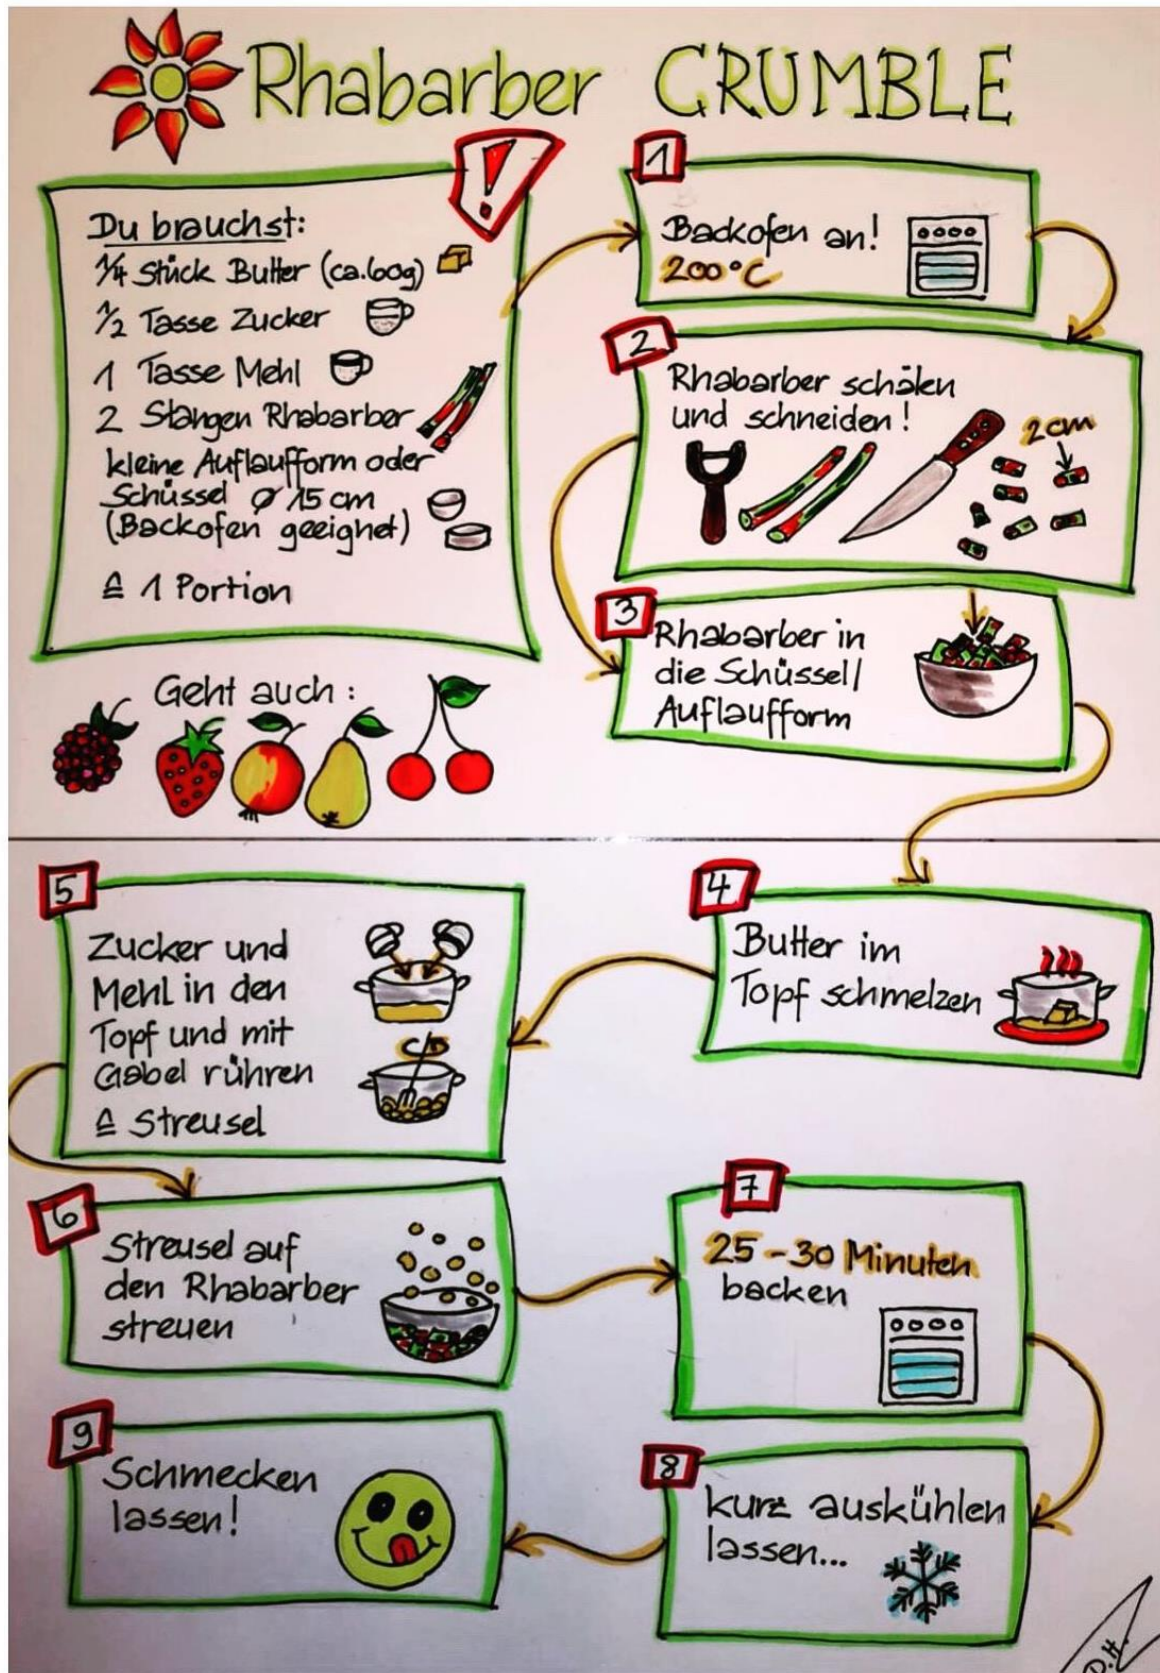 Rhabarber CRUMBLE
!
Du brauchst:
1/4 Stück Butter (ca.60g)
1/2 Tasse Zucker
1 Tasse Mehl
2 Stangen Rhabarber
kleine Auflaufform oder
Schüssel Ø 15 cm
(Backofen geeignet)
≙ 1 Portion
Geht auch:
1
Backofen an!
200°C
2
Rhabarber schälen
und schneiden!
2cm
3
Rhabarber in
die Schüssel/
Auflaufform
4
Butter im
Topf schmelzen
5
Zucker und
Mehl in den
Topf und mit
Gabel rühren
≙ Streusel
6
Streusel auf
den Rhabarber
streuen
7
25-30 Minuten
backen
8
kurz auskühlen
lassen...
9
Schmecken
lassen!
D.H.